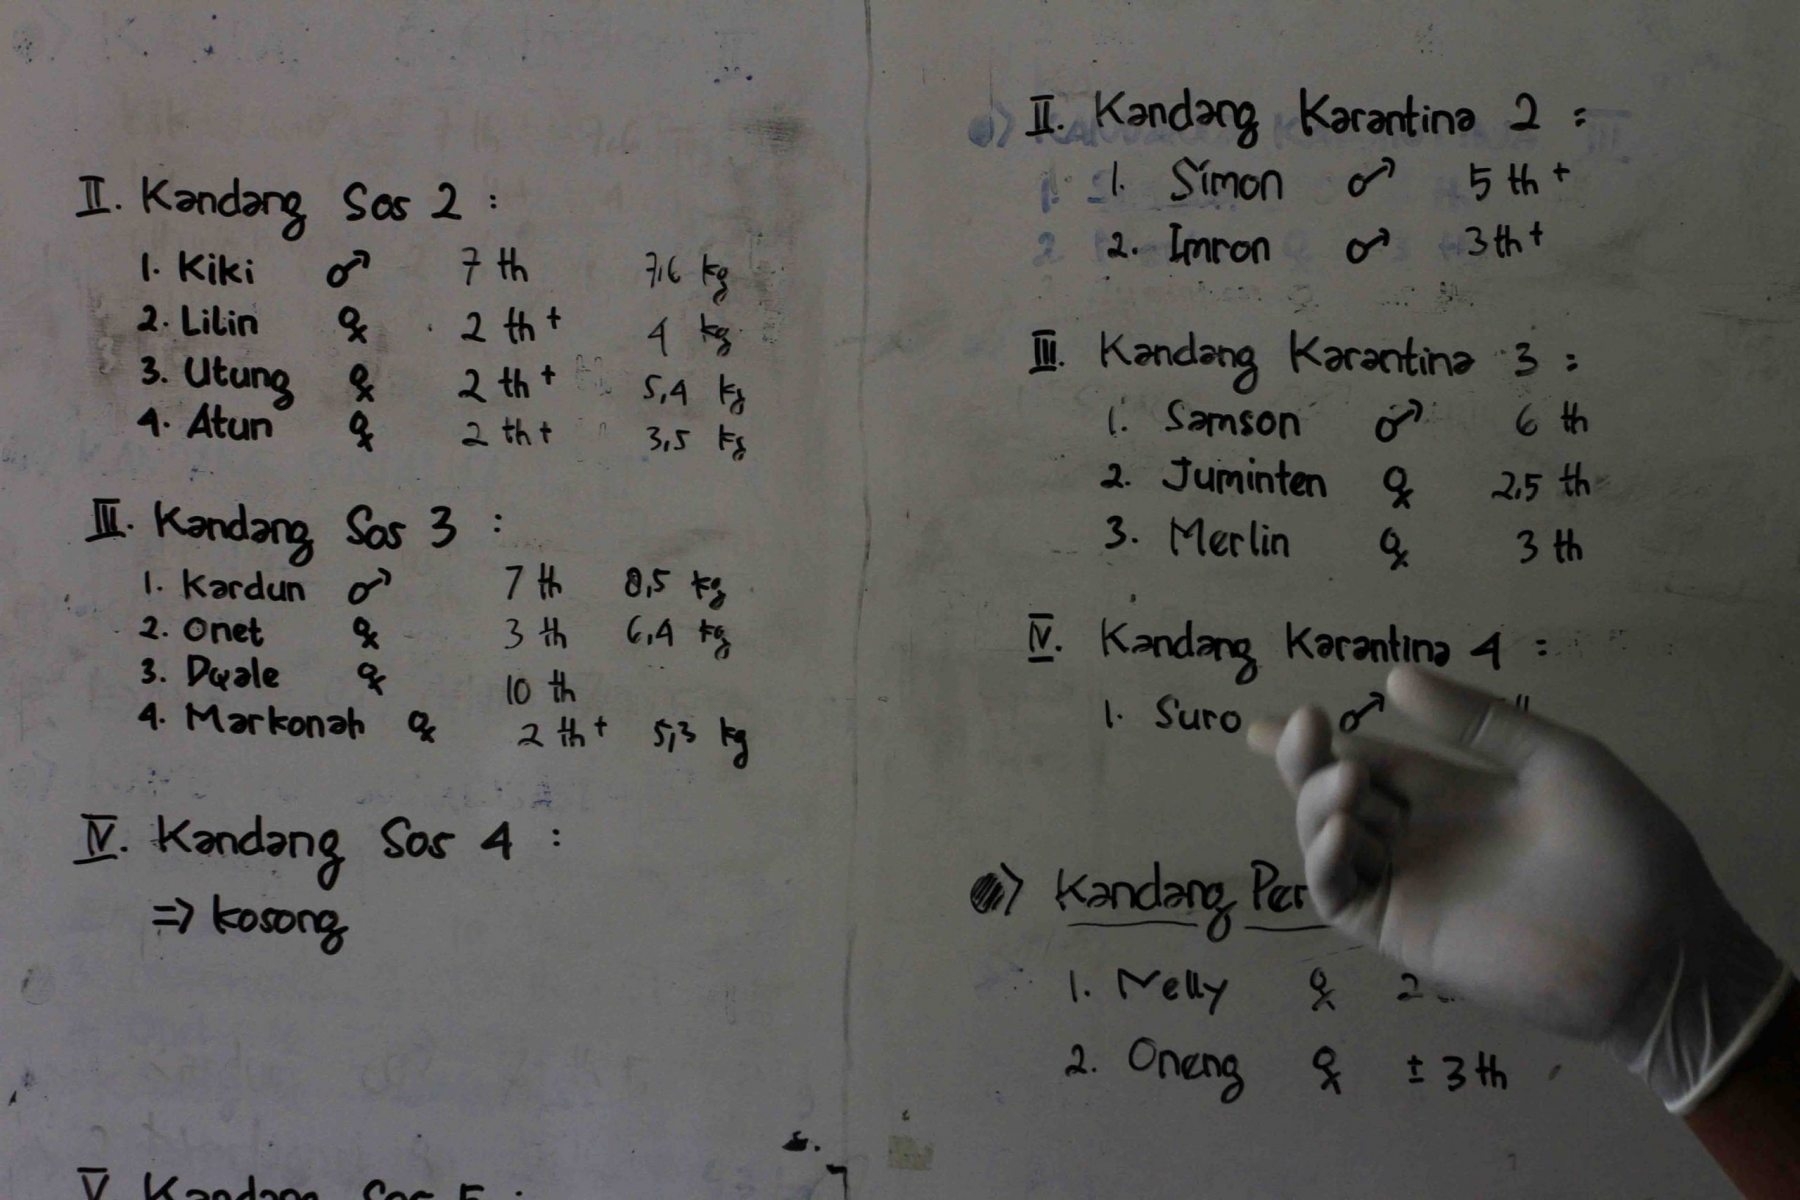 II. Kandang Sos 2 :
1. Kiki ♂ 7 th 7,6 kg
2. Lilin ♀ 2 th + 4 kg
3. Utung ♀ 2 th + 5,4 kg
4. Atun ♀ 2 th + 3,5 kg
III. Kandang Sos 3 :
1. Kardun ♂ 7 th 8,5 kg
2. Onet ♀ 3 th 6,4 kg
3. ♀ 10 th
4. Markonah ♀ 2 th + 5,3 kg
IV. Kandang Sos 4 :
=> kosong
V Kandang Sos 5 :
II. Kandang Karantina 2 :
1. Simon ♂ 5 th +
2. Imron ♂ 3 th +
III. Kandang Karantina 3 :
1. Samson ♂ 6 th
2. Juminten ♀ 2,5 th
3. Merlin ♀ 3 th
IV. Kandang Karantina 4 :
1. Suro ♂
Kandang Per
1. Nelly ♀ 2
2. Oneng ♀ ± 3 th